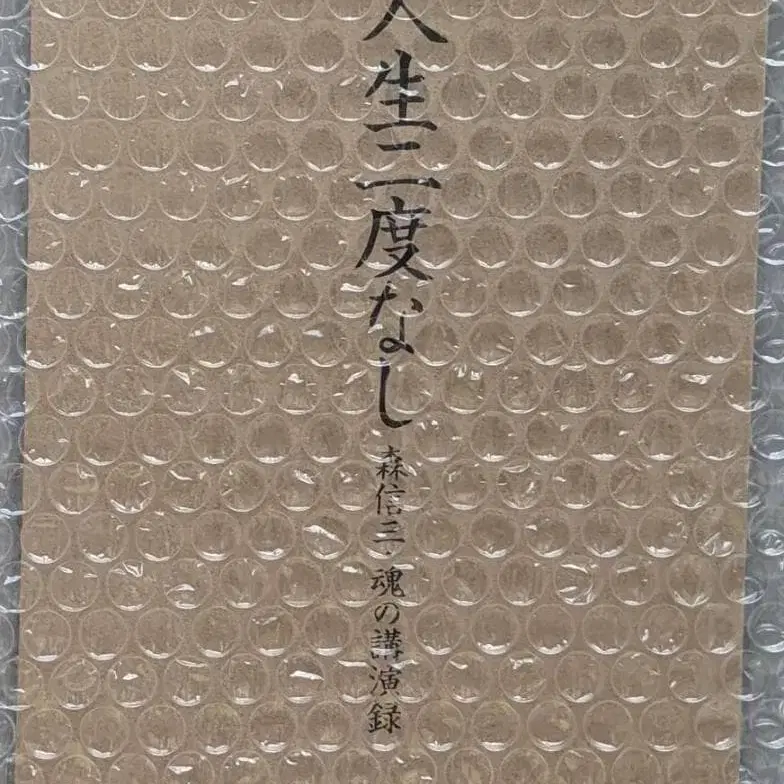 人生二度なし
森信三・魂の講演録